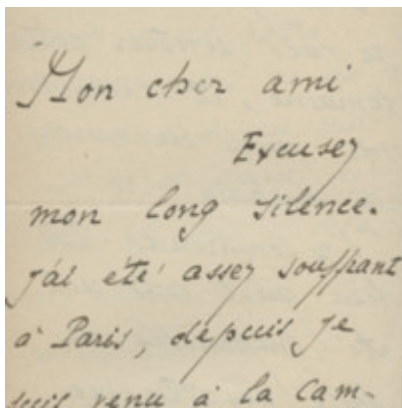 Mon cher ami
Excusez
mon long silence.
j'ai été assez souffrant
à Paris, depuis je
suis venu à la cam-